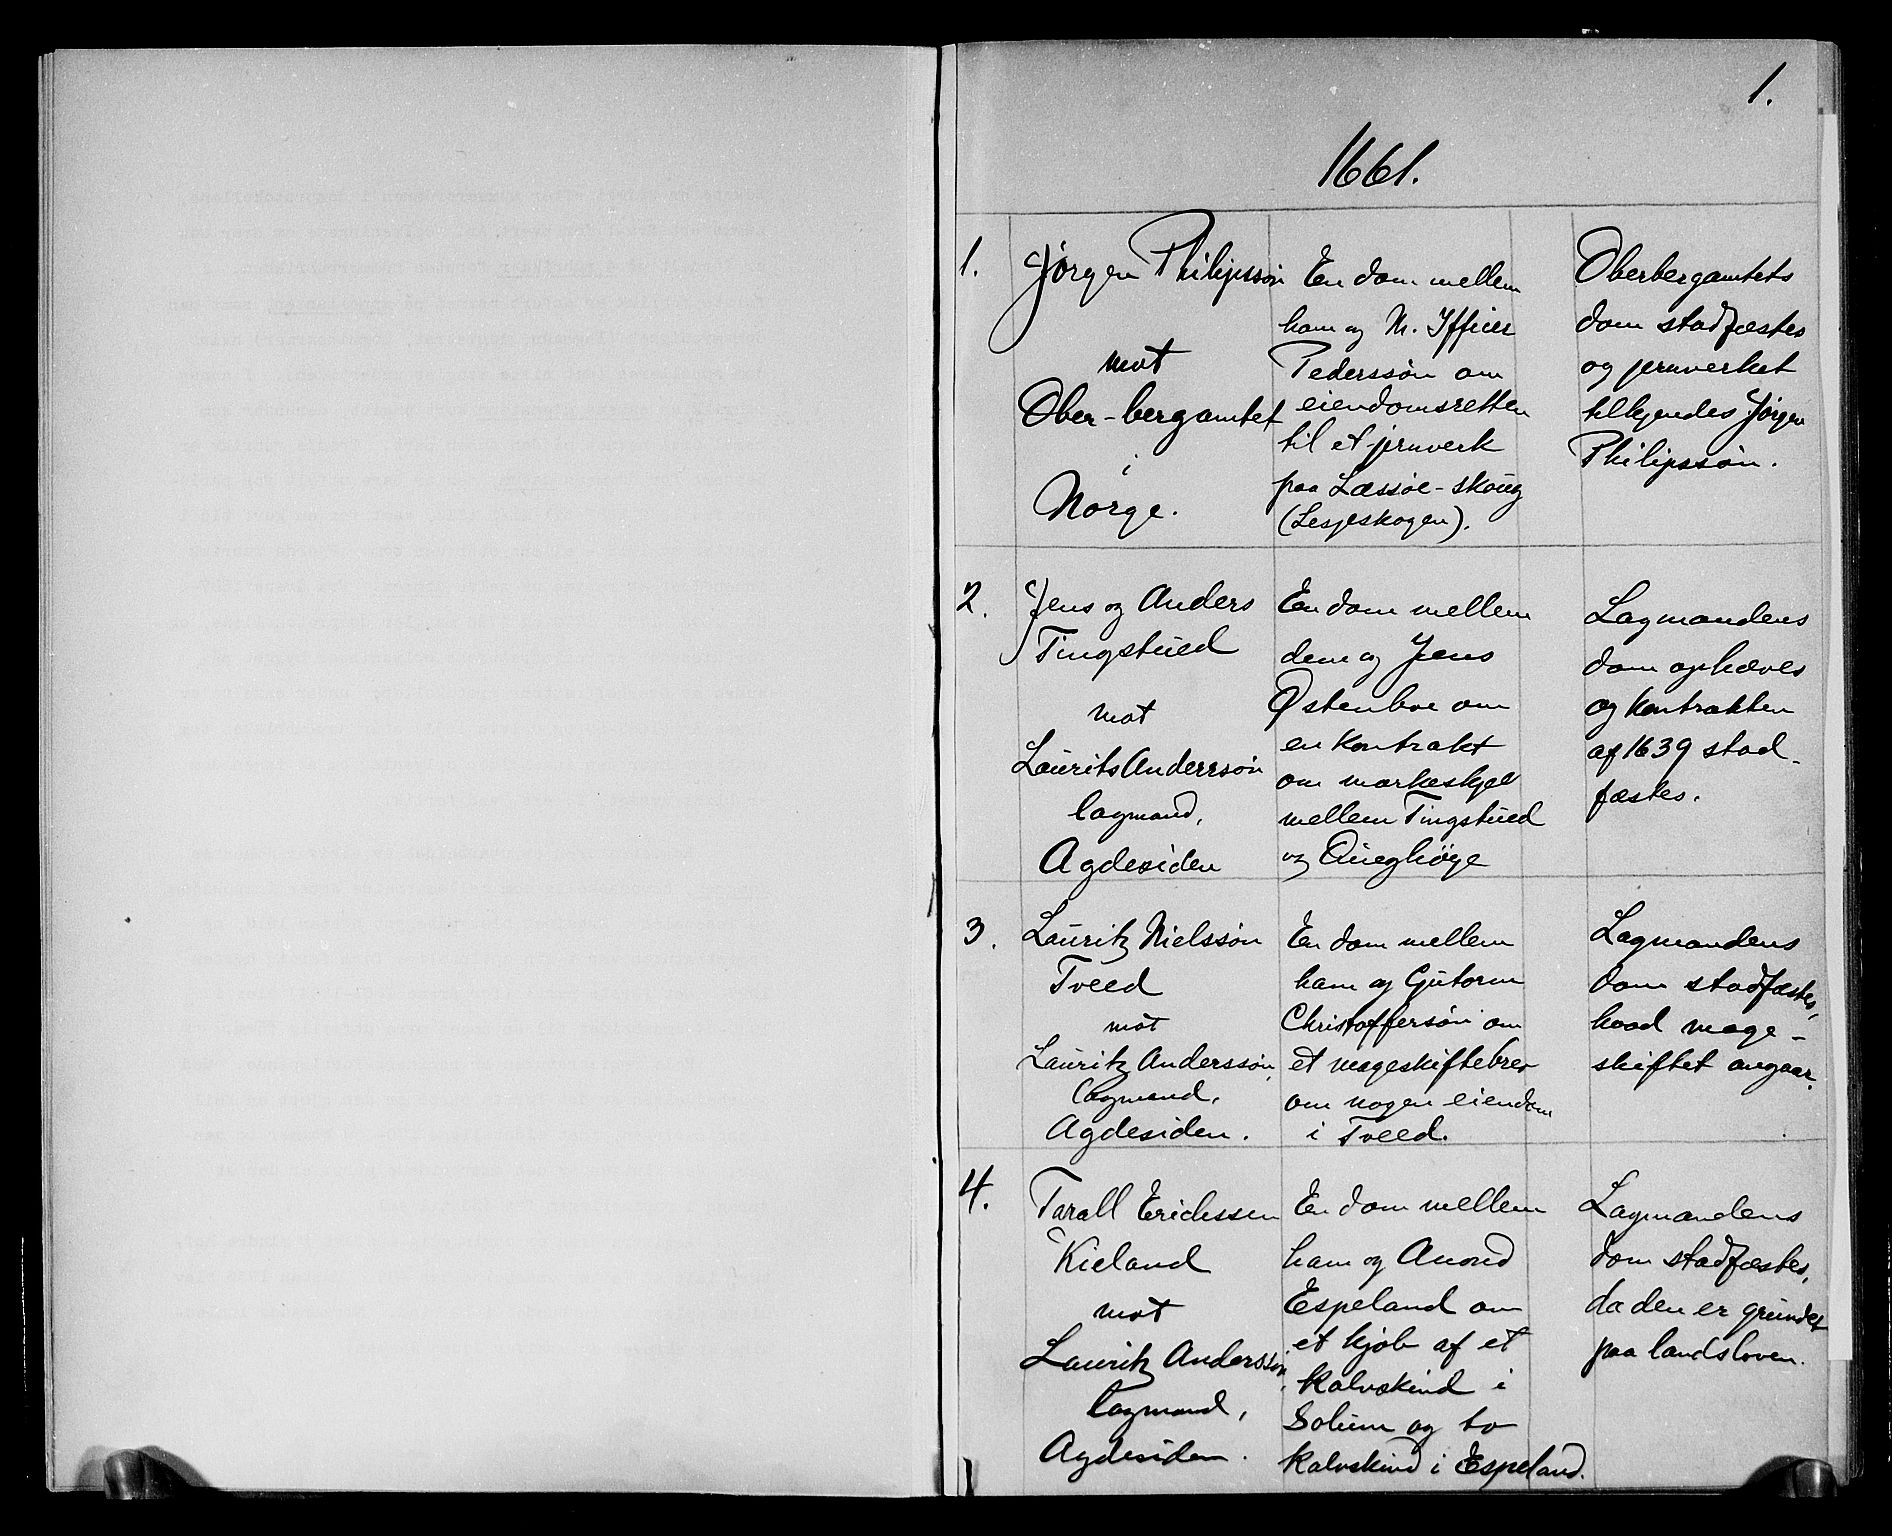 1.
1661.
1.
Jørgen Philipssøn
mot
Ober-bergamtet
i
Norge.
En dom mellem
ham og M. Iffuer
Pederssøn om
eiendomsretten
til et jernverk
paa Læssøe-skoug
(Lesjeskogen).
Oberbergamtets
dom stadfæstes
og jernverket
tilkjendes Jørgen
Philipssøn.
2.
Jens og Anders
Tingstued
mot
Laurits Anderssøn
lagmand,
Agdesiden
En dom mellem
dem og Jens
Østenboe om
en kontrakt
om markeskjel
mellem Tingstued
og Queghøye
Lagmandens
dom ophæves
og kontrakten
af 1639 stad-
fæstes.
3.
Lauritz Nielssøn
Tveed
mot
Lauritz Anderssøn,
lagmand,
Agdesiden.
En dom mellem
ham og Gutorm
Christoffersøn om
et mageskiftebrev
om nogen eiendom
i Tveed.
Lagmandens
dom stadfæstes,
hvad mage-
skiftet angaar.
4.
Tarall Erichssen
Kieland
mot
Lauritz Anderssøn,
lagmand,
Agdesiden.
En dom mellem
ham og Anond
Espeland om
et kjøb af et
kalvskind i
Solum og to
kalvskind i Espeland.
Lagmandens
dom stadfæstes,
da den er grundet
paa landsloven.